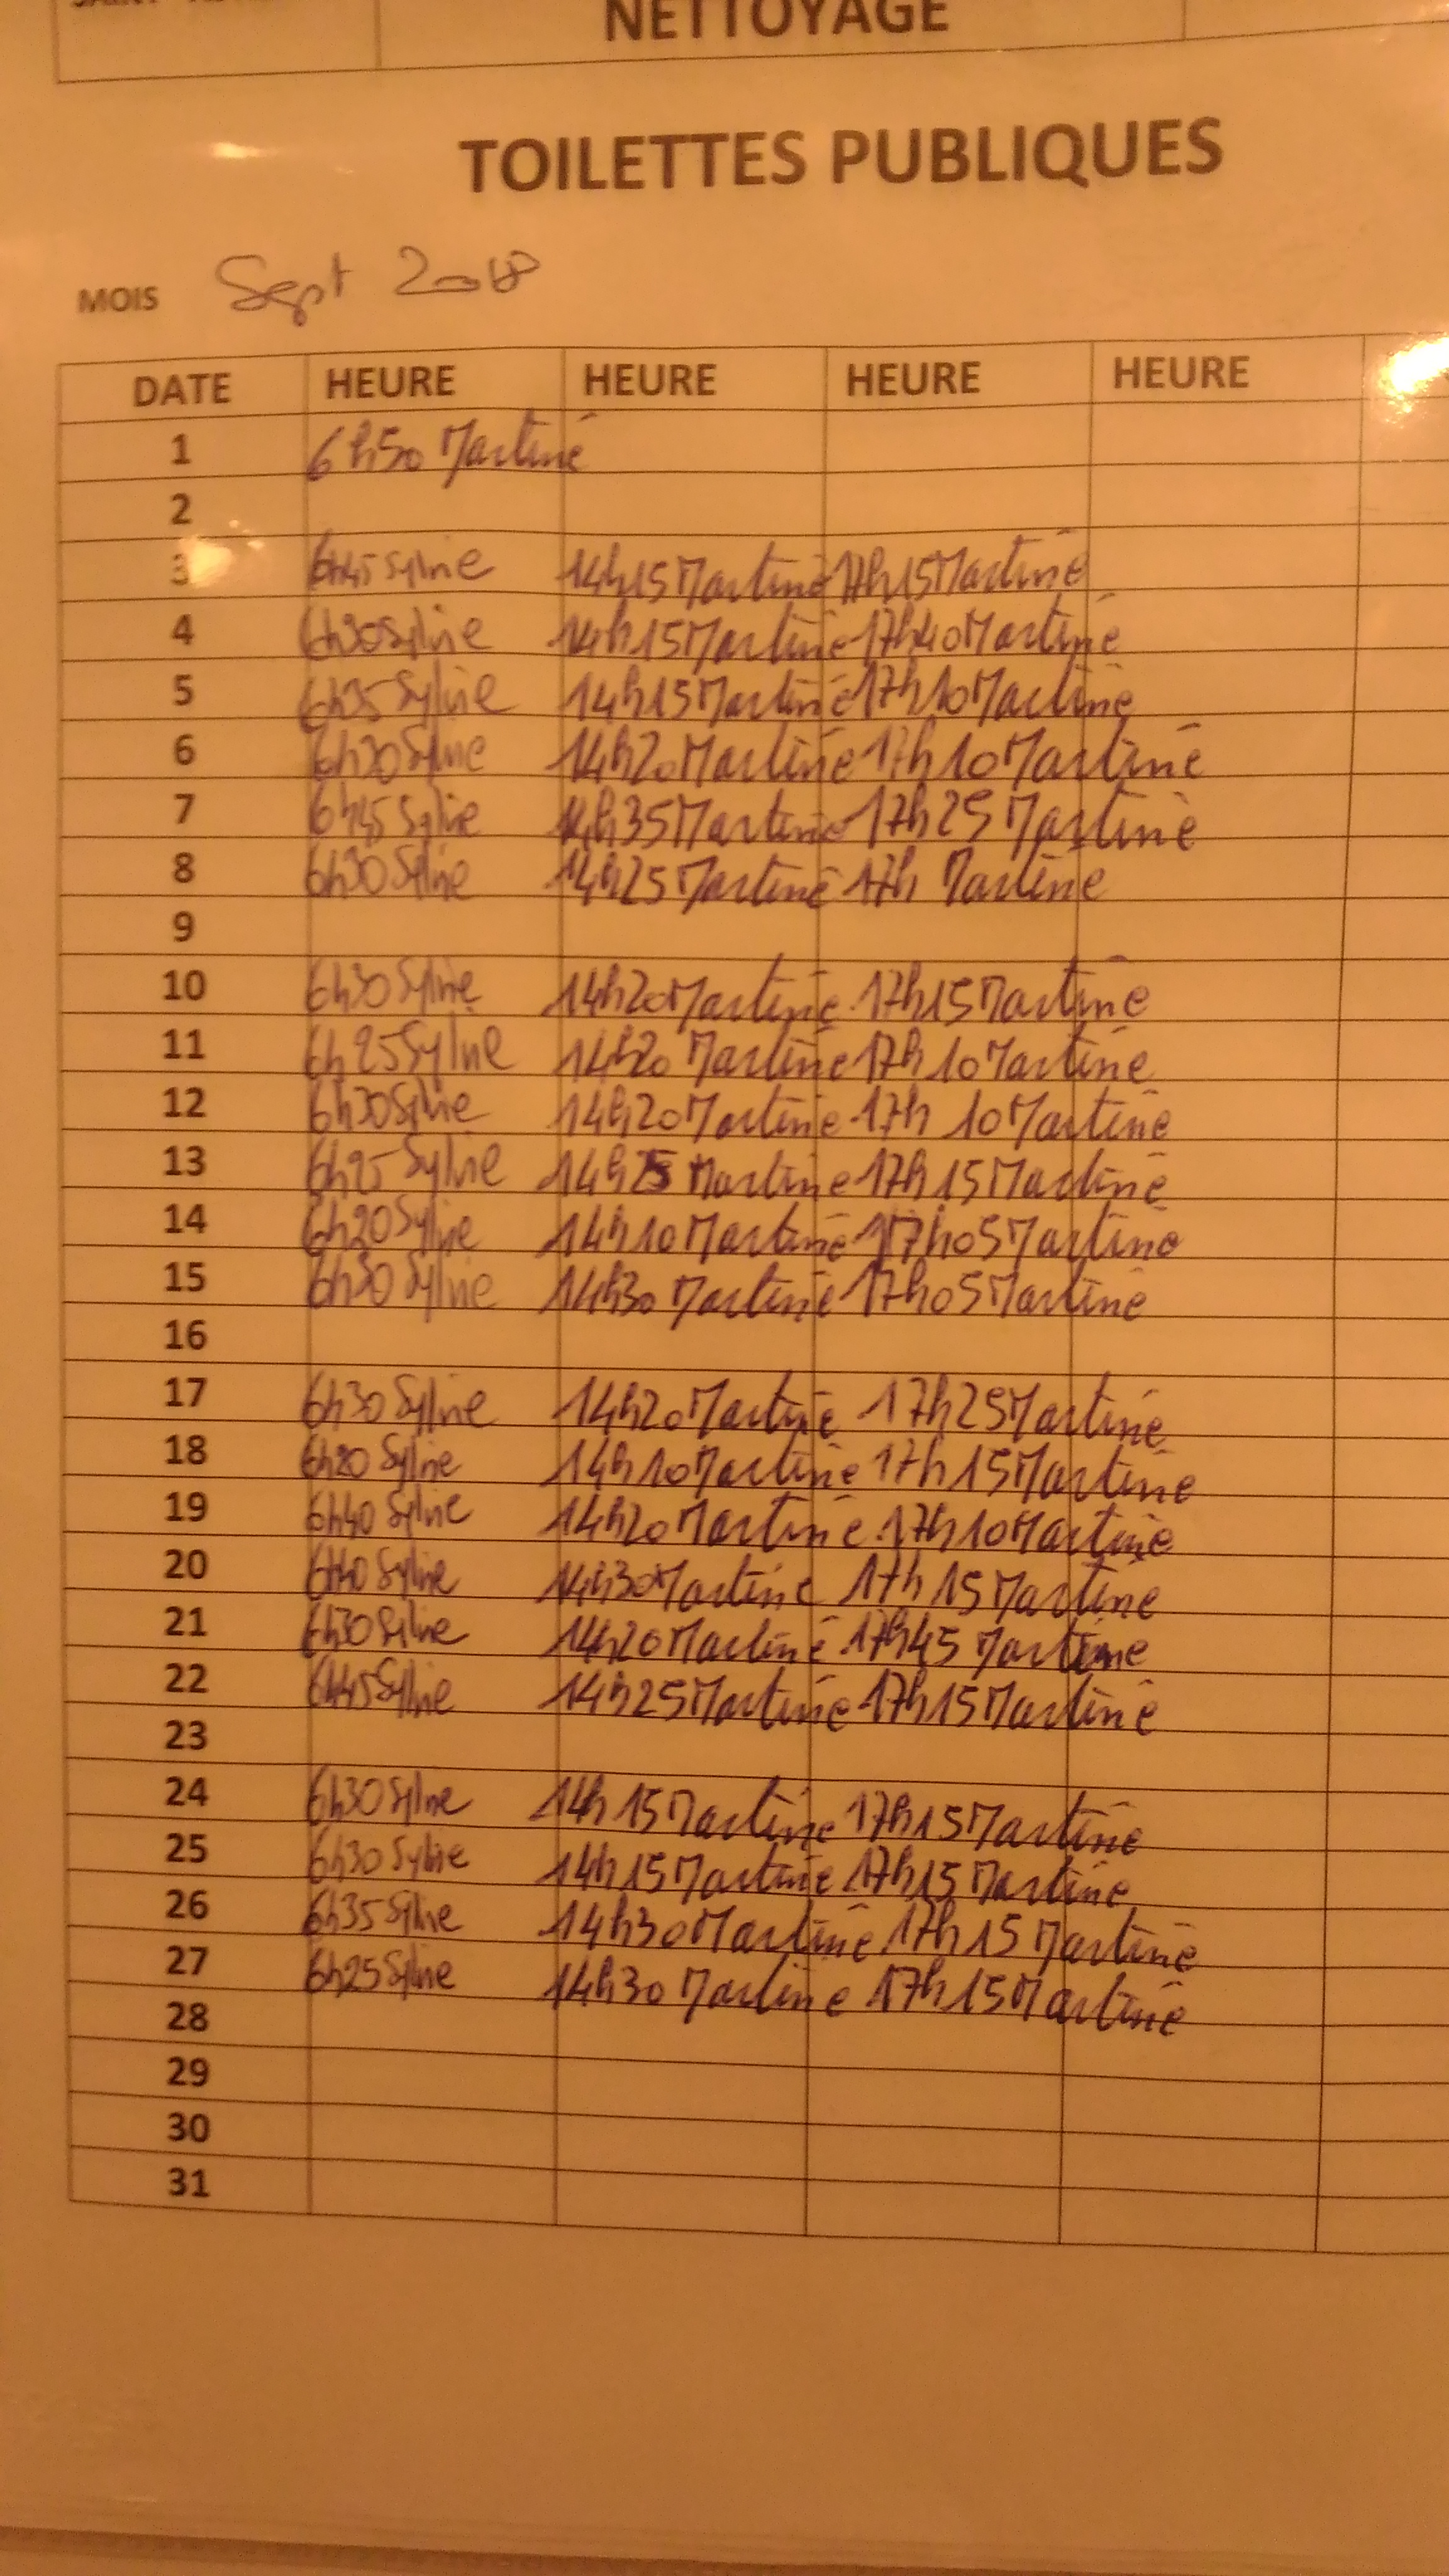 NETTOYAGE
TOILETTES PUBLIQUES
MOIS Sept 2018
DATE HEURE HEURE HEURE HEURE
1 6h50 Martine
2
3 6h45 Sylvie 14h15 Martine 17h15 Martine
4 6h30 Sylvie 14h15 Martine 17h40 Martine
5 6h35 Sylvie 14h15 Martine 17h10 Martine
6 6h30 Sylvie 14h20 Martine 17h10 Martine
7 6h45 Sylvie 14h35 Martine 17h25 Martine
8 6h30 Sylvie 14h25 Martine 17h Martine
9
10 6h30 Sylvie 14h20 Martine 17h15 Martine
11 6h25 Sylvie 14h20 Martine 17h10 Martine
12 6h30 Sylvie 14h20 Martine 17h10 Martine
13 6h25 Sylvie 14h25 Martine 17h15 Martine
14 6h20 Sylvie 14h10 Martine 17h05 Martine
15 Sylvie 14h30 Martine 17h05 Martine
16
17 6h30 Sylvie 14h20 Martine 17h25 Martine
18 6h20 Sylvie 14h10 Martine 17h15 Martine
19 6h40 Sylvie 14h20 Martine 17h10 Martine
20 6h40 Sylvie 14h30 Martine 17h15 Martine
21 6h30 Sylvie 14h20 Martine 17h45 Martine
22 6h45 Sylvie 14h25 Martine 17h15 Martine
23
24 6h30 Sylvie 14h15 Martine 17h15 Martine
25 6h30 Sylvie 14h15 Martine 17h15 Martine
26 6h35 Sylvie 14h30 Martine 17h15 Martine
27 6h25 Sylvie 14h30 Martine 17h15 Martine
28
29
30
31